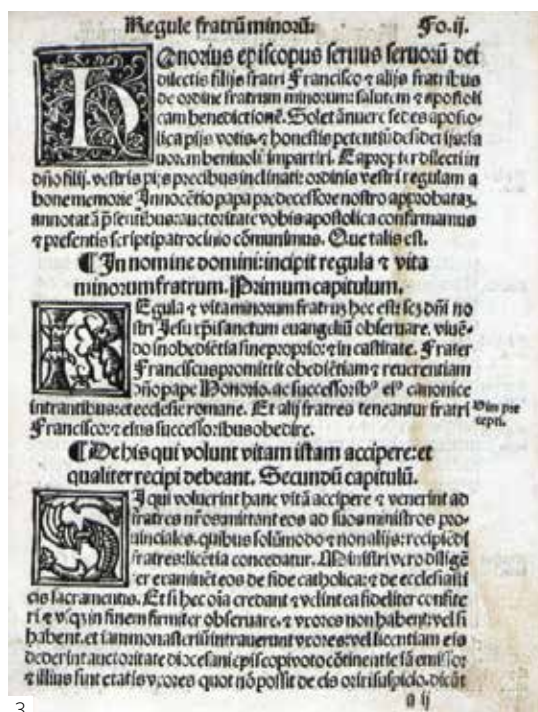 Regule fratrū minorū. Fo.ij.
Honorius episcopus seruus seruorū dei
dilectis filijs fratri Francisco ⁊ alijs fratribus
de ordine fratrum minorum: salutem ⁊ apostoli
cam benedictionē. Solet ānuere sedes aposto-
lica pijs votis, ⁊ honestis petentiū desiderijs: fa
uorem beniuolū impartiri. Eapropter dilecti in
dño filij. vestris pijs precibus inclinati: ordinis vestri regulam a
bone memorie Innocētio papa predecessore nostro approbataʒ,
annotatā p̄sentibus: auctoritate vobis apostolica confirmamus
⁊ presentis scripti patrocinio cōmunimus. Que talis est.
¶ In nomine domini: incipit regula ⁊ vita
minorum fratrum. Primum capitulum.
Regula ⁊ vita minorum fratruʒ hec est: scʒ dñi no
stri Jesu xp̄i sanctum euangeliū obseruare, viuē-
do in obediētia sine proprio: ⁊ in castitate. Frater
Franciscus promittit obediētiam ⁊ reuerentiam
dño pape Honorio. ac successoribꝰ eiꝰ canonice
intrantibus: et ecclesie romane. Et alij fratres teneantur fratri
Francisco: ⁊ eius successoribus obedire.
Vim pre
cepti.
¶ De his qui volunt vitam istam accipere: et
qualiter recipi debeant. Secundū capitulū.
Si qui voluerint hanc vitā accipere ⁊ venerint ad
fratres nr̄os: mittant eos ad suos ministros pro-
uinciales. quibus solūmodo ⁊ non alijs: recipiēdi
fratres: licētia concedatur. Ministri vero diligē
ter examinēt eos de fide catholica: ⁊ de ecclesiasti
cis sacramentis. Et si hec oīa credant ⁊ velint ea fideliter confite
ri ⁊ vsqʒ in finem firmiter obseruare. ⁊ vxores non habent: vel si
habent. et iam monasteriū intrauerunt vxores: vel licentiam eis
dederint auctoritate diocesani episcopi voto cōtinentie iā emisso:
⁊ illius sint etatis vxores quot nō possit de eis oriri suspicio. dicāt
a ij
3